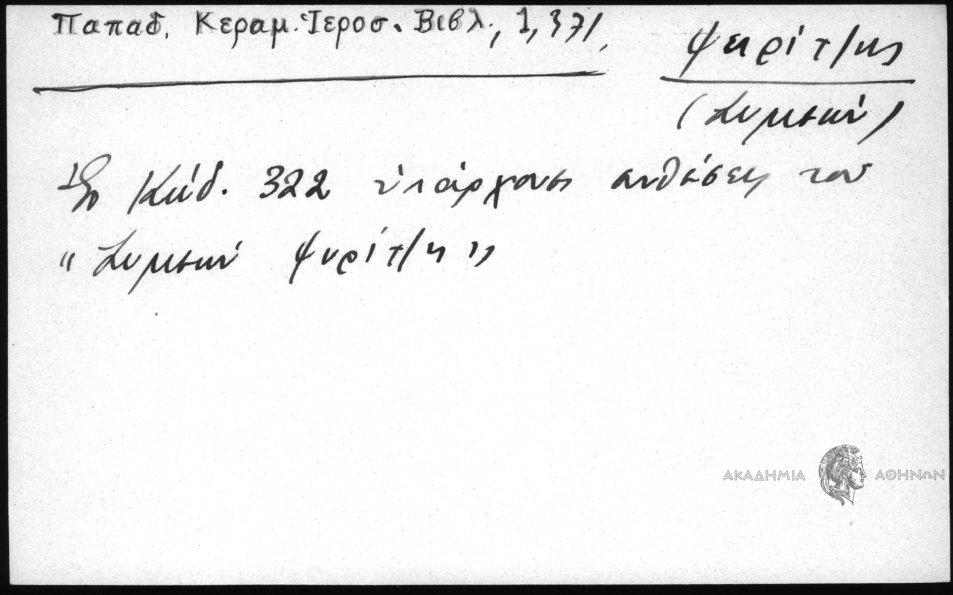 Παπαδ. Κεραμ. Ἱεροσ. Βιβλ, 1, 371,
Ψυρίτ/ης
(Συμεών)
Στο Κώδ. 322 ὑπάρχουν συνθέσεις του
"Συμεών Ψυρίτ/η"
ΑΚΑΔΗΜΙΑ ΑΘΗΝΩΝ